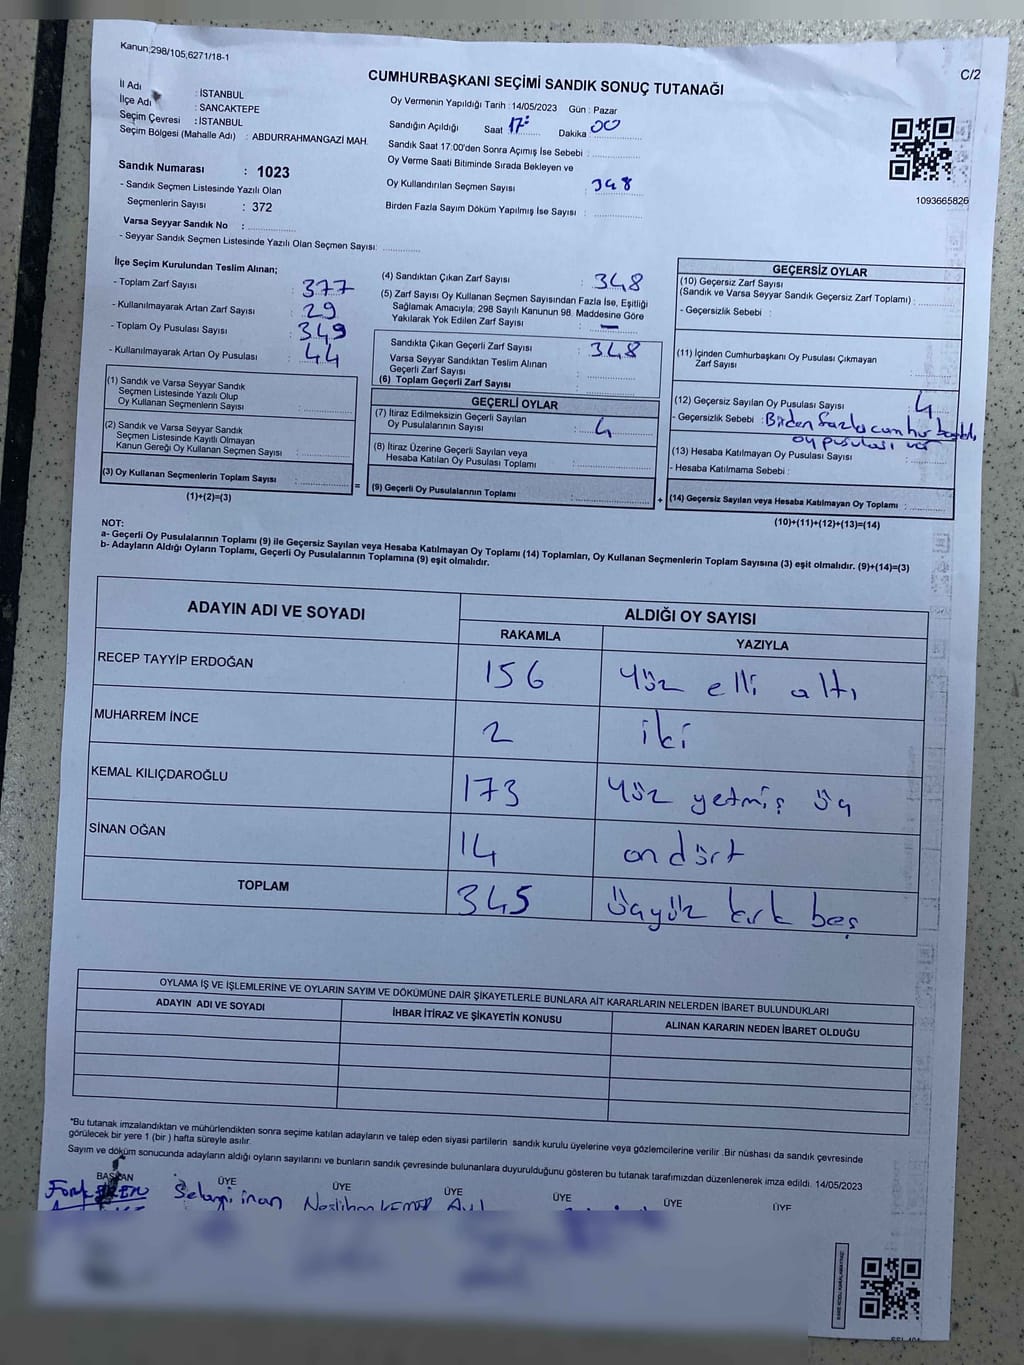 Kanun;298/105;6271/18-1
C/2
CUMHURBAŞKANI SEÇİMİ SANDIK SONUÇ TUTANAĞI
İl Adı : İSTANBUL
İlçe Adı : SANCAKTEPE
Seçim Çevresi : İSTANBUL
Seçim Bölgesi (Mahalle Adı) : ABDURRAHMANGAZİ MAH.
Sandık Numarası : 1023
- Sandık Seçmen Listesinde Yazılı Olan
Seçmenlerin Sayısı : 372
Varsa Seyyar Sandık No : ..............
- Seyyar Sandık Seçmen Listesinde Yazılı Olan Seçmen Sayısı: ............
Oy Vermenin Yapıldığı Tarih : 14/05/2023 Gün : Pazar
Sandığın Açıldığı Saat 17: Dakika 00
Sandık Saat 17:00'den Sonra Açımış İse Sebebi : ..............
Oy Verme Saati Bitiminde Sırada Bekleyen ve
Oy Kullandırılan Seçmen Sayısı : 348
Birden Fazla Sayım Döküm Yapılmış İse Sayısı : ..............
1093665826
İlçe Seçim Kurulundan Teslim Alınan;
- Toplam Zarf Sayısı : 377
- Kullanılmayarak Artan Zarf Sayısı : 29
- Toplam Oy Pusulası Sayısı : 349
- Kullanılmayarak Artan Oy Pusulası : 44
(1) Sandık ve Varsa Seyyar Sandık
Seçmen Listesinde Yazılı Olup
Oy Kullanan Seçmenlerin Sayısı : ..............
(2) Sandık ve Varsa Seyyar Sandık
Seçmen Listesinde Kayıtlı Olmayan
Kanun Gereği Oy Kullanan Seçmen Sayısı : ..............
(3) Oy Kullanan Seçmenlerin Toplam Sayısı : ..............
(1)+(2)=(3)
(4) Sandıktan Çıkan Zarf Sayısı : 348
(5) Zarf Sayısı Oy Kullanan Seçmen Sayısından Fazla İse, Eşitliği
Sağlamak Amacıyla; 298 Sayılı Kanunun 98. Maddesine Göre
Yakılarak Yok Edilen Zarf Sayısı : —
Sandıkta Çıkan Geçerli Zarf Sayısı : 348
Varsa Seyyar Sandıktan Teslim Alınan
Geçerli Zarf Sayısı : ..............
(6) Toplam Geçerli Zarf Sayısı : ..............
GEÇERLİ OYLAR
(7) İtiraz Edilmeksizin Geçerli Sayılan
Oy Pusulalarının Sayısı : 4
(8) İtiraz Üzerine Geçerli Sayılan veya
Hesaba Katılan Oy Pusulası Toplamı : ..............
= (9) Geçerli Oy Pusulalarının Toplamı : ..............
GEÇERSİZ OYLAR
(10) Geçersiz Zarf Sayısı
(Sandık ve Varsa Seyyar Sandık Geçersiz Zarf Toplamı) : ..............
- Geçersizlik Sebebi :
(11) İçinden Cumhurbaşkanı Oy Pusulası Çıkmayan
Zarf Sayısı : ..............
(12) Geçersiz Sayılan Oy Pusulası Sayısı : 4
- Geçersizlik Sebebi : Birden fazla cumhurbaşkanı
oy pusulası var
(13) Hesaba Katılmayan Oy Pusulası Sayısı : ..............
- Hesaba Katılmama Sebebi :
+ (14) Geçersiz Sayılan veya Hesaba Katılmayan Oy Toplamı : ..............
(10)+(11)+(12)+(13)=(14)
NOT:
a- Geçerli Oy Pusulalarının Toplamı (9) ile Geçersiz Sayılan veya Hesaba Katılmayan Oy Toplamı (14) Toplamları, Oy Kullanan Seçmenlerin Toplam Sayısına (3) eşit olmalıdır. (9)+(14)=(3)
b- Adayların Aldığı Oyların Toplamı, Geçerli Oy Pusulalarının Toplamına (9) eşit olmalıdır.
ADAYIN ADI VE SOYADI ALDIĞI OY SAYISI
RAKAMLA YAZIYLA
RECEP TAYYİP ERDOĞAN 156 Yüz elli altı
MUHARREM İNCE 2 iki
KEMAL KILIÇDAROĞLU 173 Yüz yetmiş üç
SİNAN OĞAN 14 on dört
TOPLAM 345 üçyüz kırk beş
OYLAMA İŞ VE İŞLEMLERİNE VE OYLARIN SAYIM VE DÖKÜMÜNE DAİR ŞİKAYETLERLE BUNLARA AİT KARARLARIN NELERDEN İBARET BULUNDUKLARI
ADAYIN ADI VE SOYADI İHBAR İTİRAZ VE ŞİKAYETİN KONUSU ALINAN KARARIN NEDEN İBARET OLDUĞU
*Bu tutanak imzalandıktan ve mühürlendikten sonra seçime katılan adayların ve talep eden siyasi partilerin sandık kurulu üyelerine veya gözlemcilerine verilir .Bir nüshası da sandık çevresinde
görülecek bir yere 1 (bir ) hafta süreyle asılır.
Sayım ve döküm sonucunda adayların aldığı oyların sayılarını ve bunların sandık çevresinde bulunanlara duyurulduğunu gösteren bu tutanak tarafımızdan düzenlenerek imza edildi. 14/05/2023
BAŞKAN ÜYE ÜYE ÜYE ÜYE ÜYE ÜYE
inan Neslihan